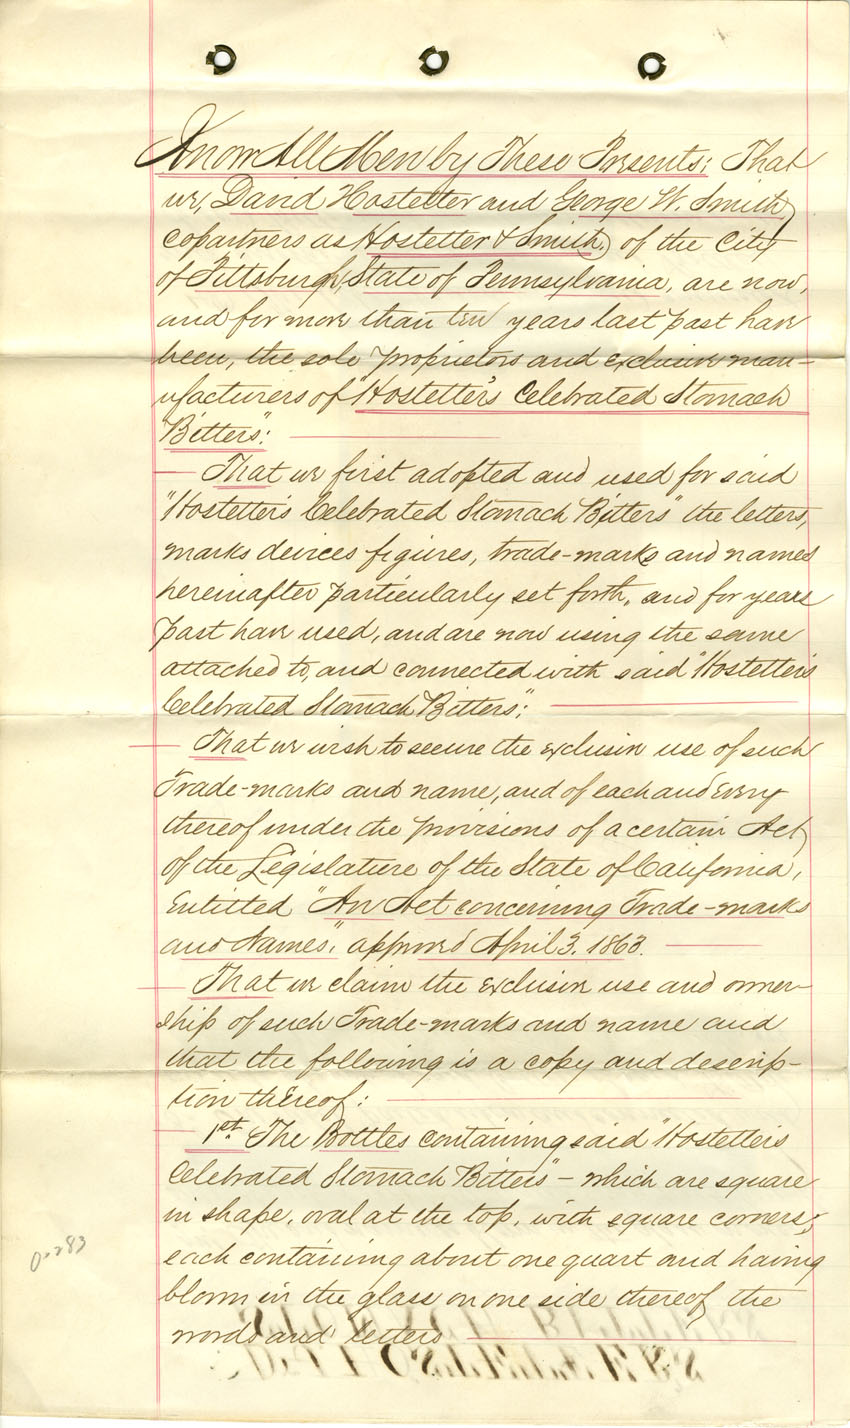 Know All Men by These Presents: That
we, David Hostetter and George W. Smith,
copartners as Hostetter & Smith, of the City
of Pittsburgh, State of Pennsylvania, are now,
and for more than ten years last past have
been, the sole proprietors and exclusive man-
ufacturers of "Hostetter's Celebrated Stomach
Bitters":
That we first adopted and used for said
"Hostetter's Celebrated Stomach Bitters" the letters,
marks devices figures, trade-marks and names
hereinafter particularly set forth, and for years
past have used, and are now using the same
attached to, and connected with said "Hostetter's
Celebrated Stomach Bitters":
That we wish to secure the exclusive use of such
Trade-marks and name, and of each and every
thereof under the provisions of a certain Act,
of the Legislature of the State of California,
Entitled "An Act concerning Trade-marks
and Names", approved April 3, 1863.
That we claim the exclusive use and owner-
ship of such Trade-marks and name and
that the following is a copy and descrip-
tion thereof:
1st. The Bottles containing said "Hostetter's
Celebrated Stomach Bitters" - which are square
in shape, oval at the top, with square corners;
each containing about one quart and having
blown in the glass on one side thereof the
words and letters